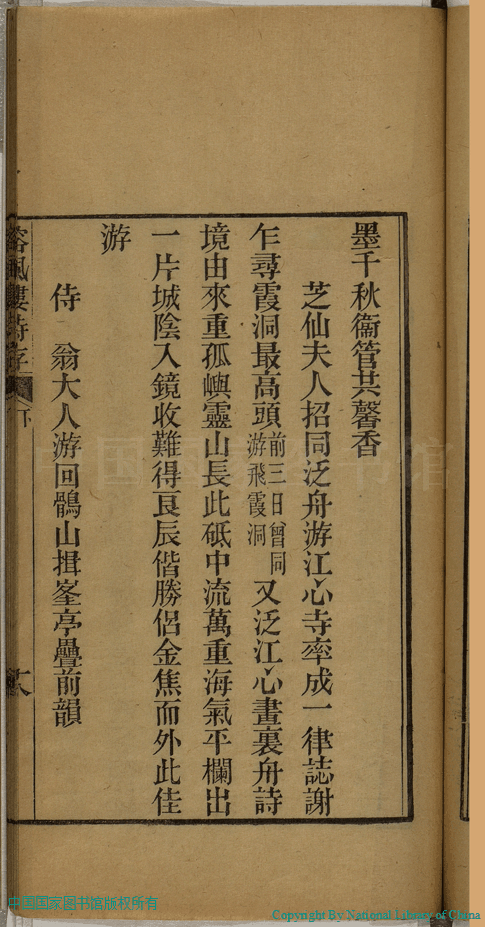 墨千秋衞管共馨香
芝仙夫人招同泛舟游江心寺率成一律誌謝
乍尋霞洞最高頭前三日曾同游飛霞洞又泛江心畫裏舟詩
境由來重孤嶼靈山長此砥中流萬重海氣平欄出
一片城陰入鏡收難得良辰偕勝侶金焦而外此佳
游
侍 翁大人游回鶻山揖峯亭疊前韻
中国国家图书馆版权所有
Copyright By National Library of China